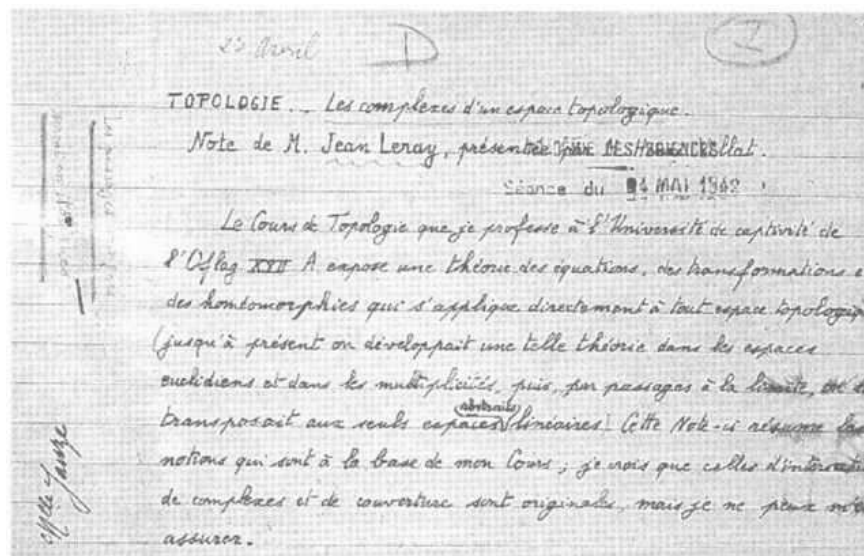 23 Avril D I
TOPOLOGIE. _ Les complexes d'un espace topologique.
Note de M. Jean Leray, présentée par
Séance du MAI 1942
Le Cours de Topologie que je professe à l'Université de captivité de
l'Oflag XVII A expose une théorie des équations, des transformations e
des homéomorphies qui s'applique directement à tout espace topologiq
(jusqu'à présent on développait une telle théorie dans les espaces
euclidiens et dans les multiplicités, puis, par passages à la limite,
abstraits
transposait aux seuls espaces linéaires) Cette Note-ci résume
notions qui sont à la base de mon Cours ; je crois que celles d'intersecti
de complexes et de couverture sont originales, mais je ne peux m'e
assurer.
Melle